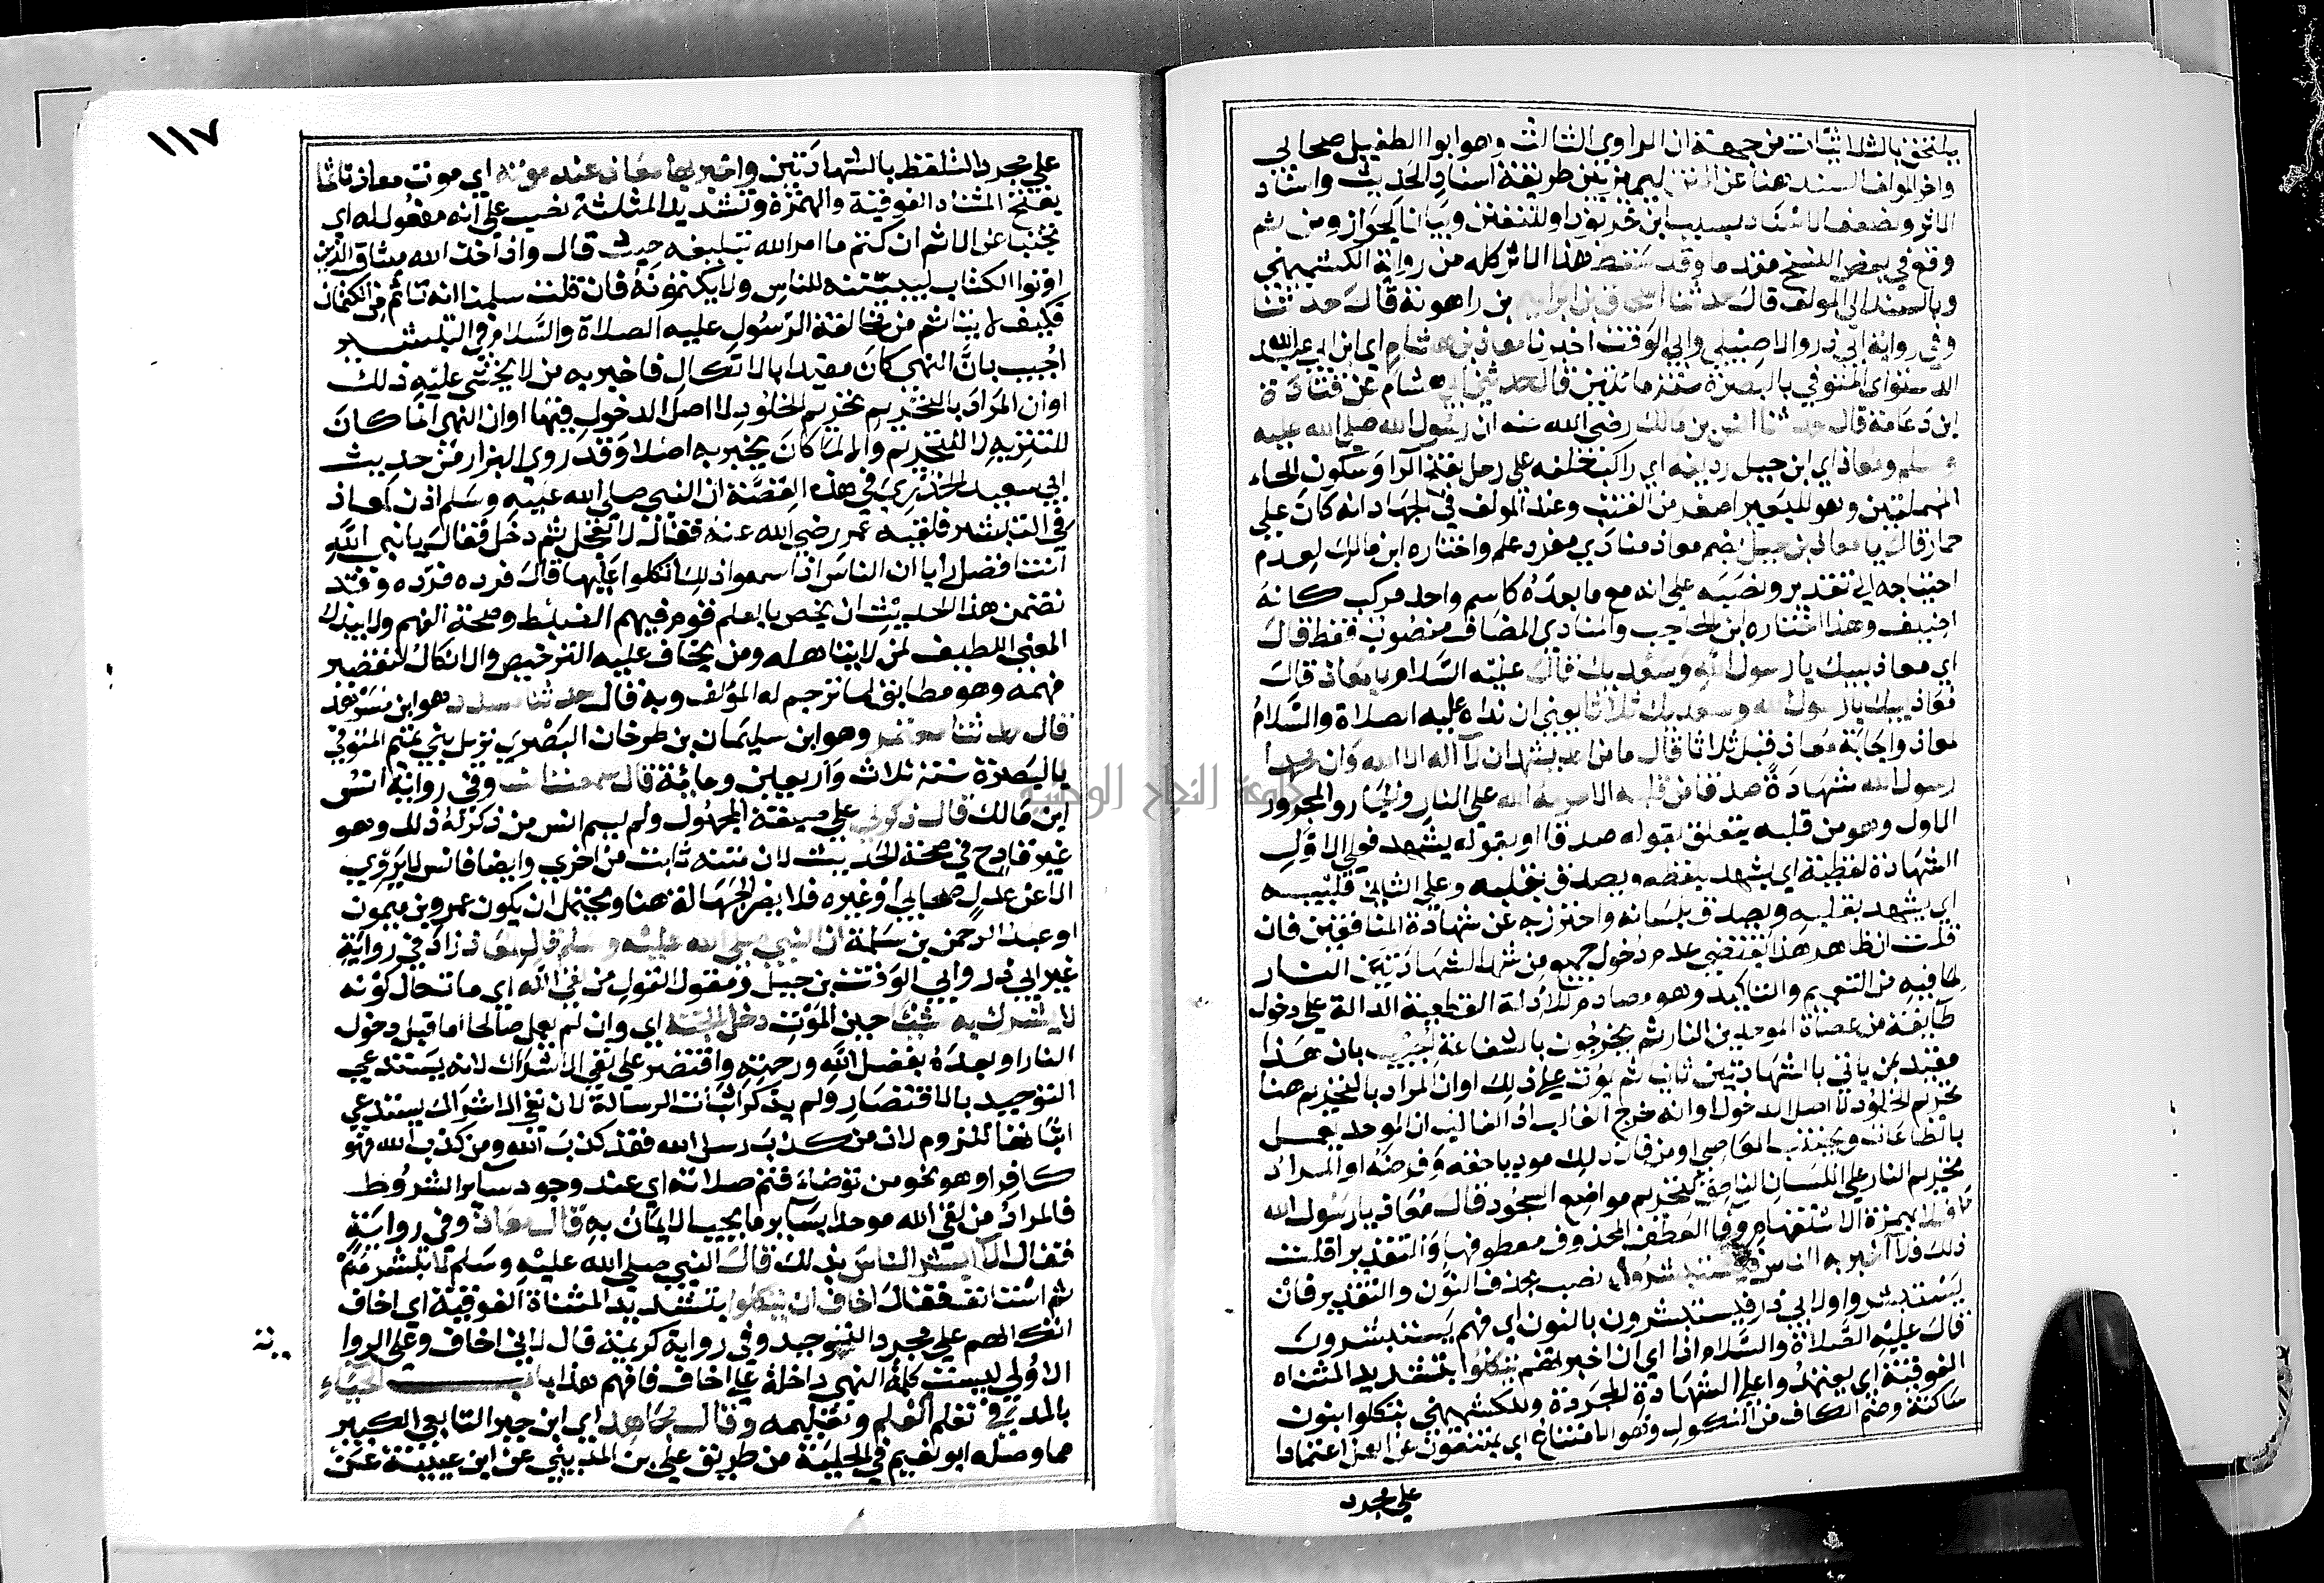 يلتحق بالثلاثيات من جهة ان الراوي الثالث وهو ابو الطفيل صحابي
واخر المولف السند هنا عن المتن ليميز بين طريقة اسناد الحديث واسناد
الاثر ولضعف الاسناد بسبب ابن خربوذ او للتفنن وبيانا لجواز ومن ثم
وقع في بعض النسخ مقدما وقد سقط هذا الاثر كله من رواية الكشميهني
وبالسند الى المولف قال حدثنا اسحاق بن ابراهيم بن راهوية قال حدثنا
وفي رواية ابي ذر والاصيلي وابي الوقت اخبرنا معاذ بن هشام اي ابن ابي عبد الله
الدستواي المتوفي بالبصرة سنة مائتين قال حدثني ابي هشام عن قتادة
ابن دعامة قال حدثنا انس بن مالك رضي الله عنه ان رسول الله صلى الله عليه
وسلم ومعاذ اي ابن جبل رديفه اي راكب خلفه على رحل بفتح الرا وسكون الحاء
المهملتين وهو للبعير اصغر من القتب وعند المولف في الجهاد انه كان على
حمار قال يا معاذ بن جبل بضم معاذ منادي مفرد علم واختاره ابن مالك لعدم
احتياجه الي تقدير ونصبه على انه مع ما بعده كاسم واحد مركب كانه
اضيف وهذا اختاره ابن الحاجب والمنادي المضاف منصوب فقط قال
اي معاذ لبيك يا رسول الله وسعديك قال عليه السلام يا معاذ قال
معاذ لبيك يا رسول الله وسعديك ثلاثا يعني ان نداه عليه الصلاة والسلام
لمعاذ واجابة معاذ قيل ثلاثا قال ما من احد يشهد ان لا اله الا الله وان محمدا
رسول الله شهادة صدقا من قلبه الا حرمه الله على النار والجار والمجرور
الاول وهو من قلبه يتعلق بقوله صدقا او بقوله يشهد فعلى الاول
الشهادة لفظية اي يشهد بلفظه ويصدق بقلبه وعلى الثاني قلبيه
اي يشهد بقلبه ويصدق بلسانه واحترز به عن شهادة المنافقين فان
قلت ان ظاهر هذا يقتضي عدم دخول جميع من شهد الشهادتين النار
لما فيه من التعميم والتاكيد وهو مصادم للادلة القطعية الدالة على دخول
طايفة من عصاة الموحدين النار ثم يخرجون بالشفاعة اجيب بان هذا
مقيد بمن ياتي بالشهادتين تايب ثم يموت على ذلك او ان المراد بالتحريم هنا
تحريم الخلود لا اصل الدخول او انه خرج مخرج الغالب اذ الغالب ان الموحد يعمل
بالطاعات ويجتنب المعاصي او من قال ذلك موديا حقه وفرضه او المراد
تحريم النار على اللسان الناطق كتحريم مواضع السجود قال معاذ يا رسول الله
افلا بهمزة الاستفهام وفا العطف المحذوف معطوفها والتقدير اقلت
ذلك فلا اخبر به الناس فيستبشروا نصب بحذف النون والتقدير فان
يستبشروا ولابي ذر فيستبشرون بالنون اي فهم يستبشرون
قال عليه الصلاة والسلام اذا اي ان اخبرتهم يتكلوا بتشديد المثناه
الفوقية اي يعتمدوا على الشهادة المجردة وللكشميهني ينكلوا بنون
ساكنة وضم الكاف من النكول وهو الامتناع اي يمتنعون عن العمل اعتمادا
على مجرد
١١٧
على مجرد التلفظ بالشهادتين واخبر بها معاذ عند موته اي موت معاذ تاثما
بفتح المثناة الفوقية والهمزة وتشديد المثلثة نصب على انه مفعول له اي
تجنبا عن الاثم ان كتم ما امر الله بتبليغه حيث قال واذ اخذ الله ميثاق الذين
اوتوا الكتاب ليبيننه للناس ولا يكتمونه فان قلت سلمنا انه تاثم من الكتمان
فكيف لا يتاثم من مخالفة الرسول عليه الصلاة والسلام في التبشير
اجيب بان النهي كان مقيدا بالاتكال فاخبر به من لا يخشى عليه ذلك
او ان المراد بالتحريم تحريم الخلود لا اصل الدخول فيها او ان النهي انما كان
للتنزيه لا للتحريم والا لما كان يخبر به اصلا وقد روى البزار من حديث
ابي سعيد الخدري في هذه القصة ان النبي صلى الله عليه وسلم اذن لمعاذ
في التبشير فلقيه عمر رضي الله عنه فقال لا تعجل ثم دخل فقال يا نبي الله
انت افضل رايا ان الناس اذا سمعوا ذلك اتكلوا عليها قال فرده فرده وقد
تضمن هذا الحديث ان يخص بالعلم قوم فيهم الضبط وصحة الفهم ولا يبذل
المعني اللطيف لمن لا يتاهله ومن يخاف عليه الترخيص والاتكال لتقصير
فهمه وهو مطابق لما ترجم له المؤلف وبه قال حدثنا مسدد هو ابن مسرهد
قال حدثنا معتمر وهو ابن سليمان بن طرخان البصري نزيل بني تميم المتوفي
بالبصرة سنة ثلاث واربعين ومائة قال سمعت انسا وفي رواية انس
ابن مالك قال ذكر لي على صيغة المجهول ولم يسم انس من ذكر له ذلك وهو
غير قادح في صحة الحديث لان متنه ثابت من اخري وايضا فانس لا يروي
الا عن عدل صحابي او غيره فلا يضر الجهالة هنا ويحتمل ان يكون عمرو بن ميمون
او عبد الرحمن بن سلمة ان النبي صلى الله عليه وسلم قال لمعاذ زاد في رواية
غير ابي ذر وابي الوقت بن جبل ومقول القول من لقي الله اي مات حال كونه
لا يشرك به شيئا حين الموت دخل الجنة اي وان لم يعمل صالحا اما قبل دخول
النار او بعده بفضل الله ورحمته واقتصر على نفي الاشراك لانه يستدعي
التوحيد بالاقتصار ولم يذكر اثبات الرسالة لان نفي الاشراك يستدعي
اثباتها للزوم لان من كذب رسل الله فقد كذب الله ومن كذب الله فهو
كافر او هو نحو من توضا فتم صلاته اي عند وجود سائر الشروط
فالمراد من لقي الله موحدا بسائر ما يجب الايمان به قال معاذ وفي رواية
فقال الا ابشر الناس بذلك قال النبي صلى الله عليه وسلم لا تبشرهم
ثم استانف فقال اخاف ان يتكلوا بتشديد المثناة الفوقية اي اخاف
اتكالهم على مجرد التوحيد وفي رواية كريمة قال لا اني اخاف وعلى الروا
ية
الاولي ليست كلمة النهي داخلة على اخاف فافهم هذا باب الحياء
بالمد في تعلم العلم وتعليمه وقال مجاهد اي ابن جبر التابعي الكبير
مما وصله ابو نعيم في الحلية من طريق علي بن المديني عن ابن عيينة عن
جامعة النجاح الوطنية